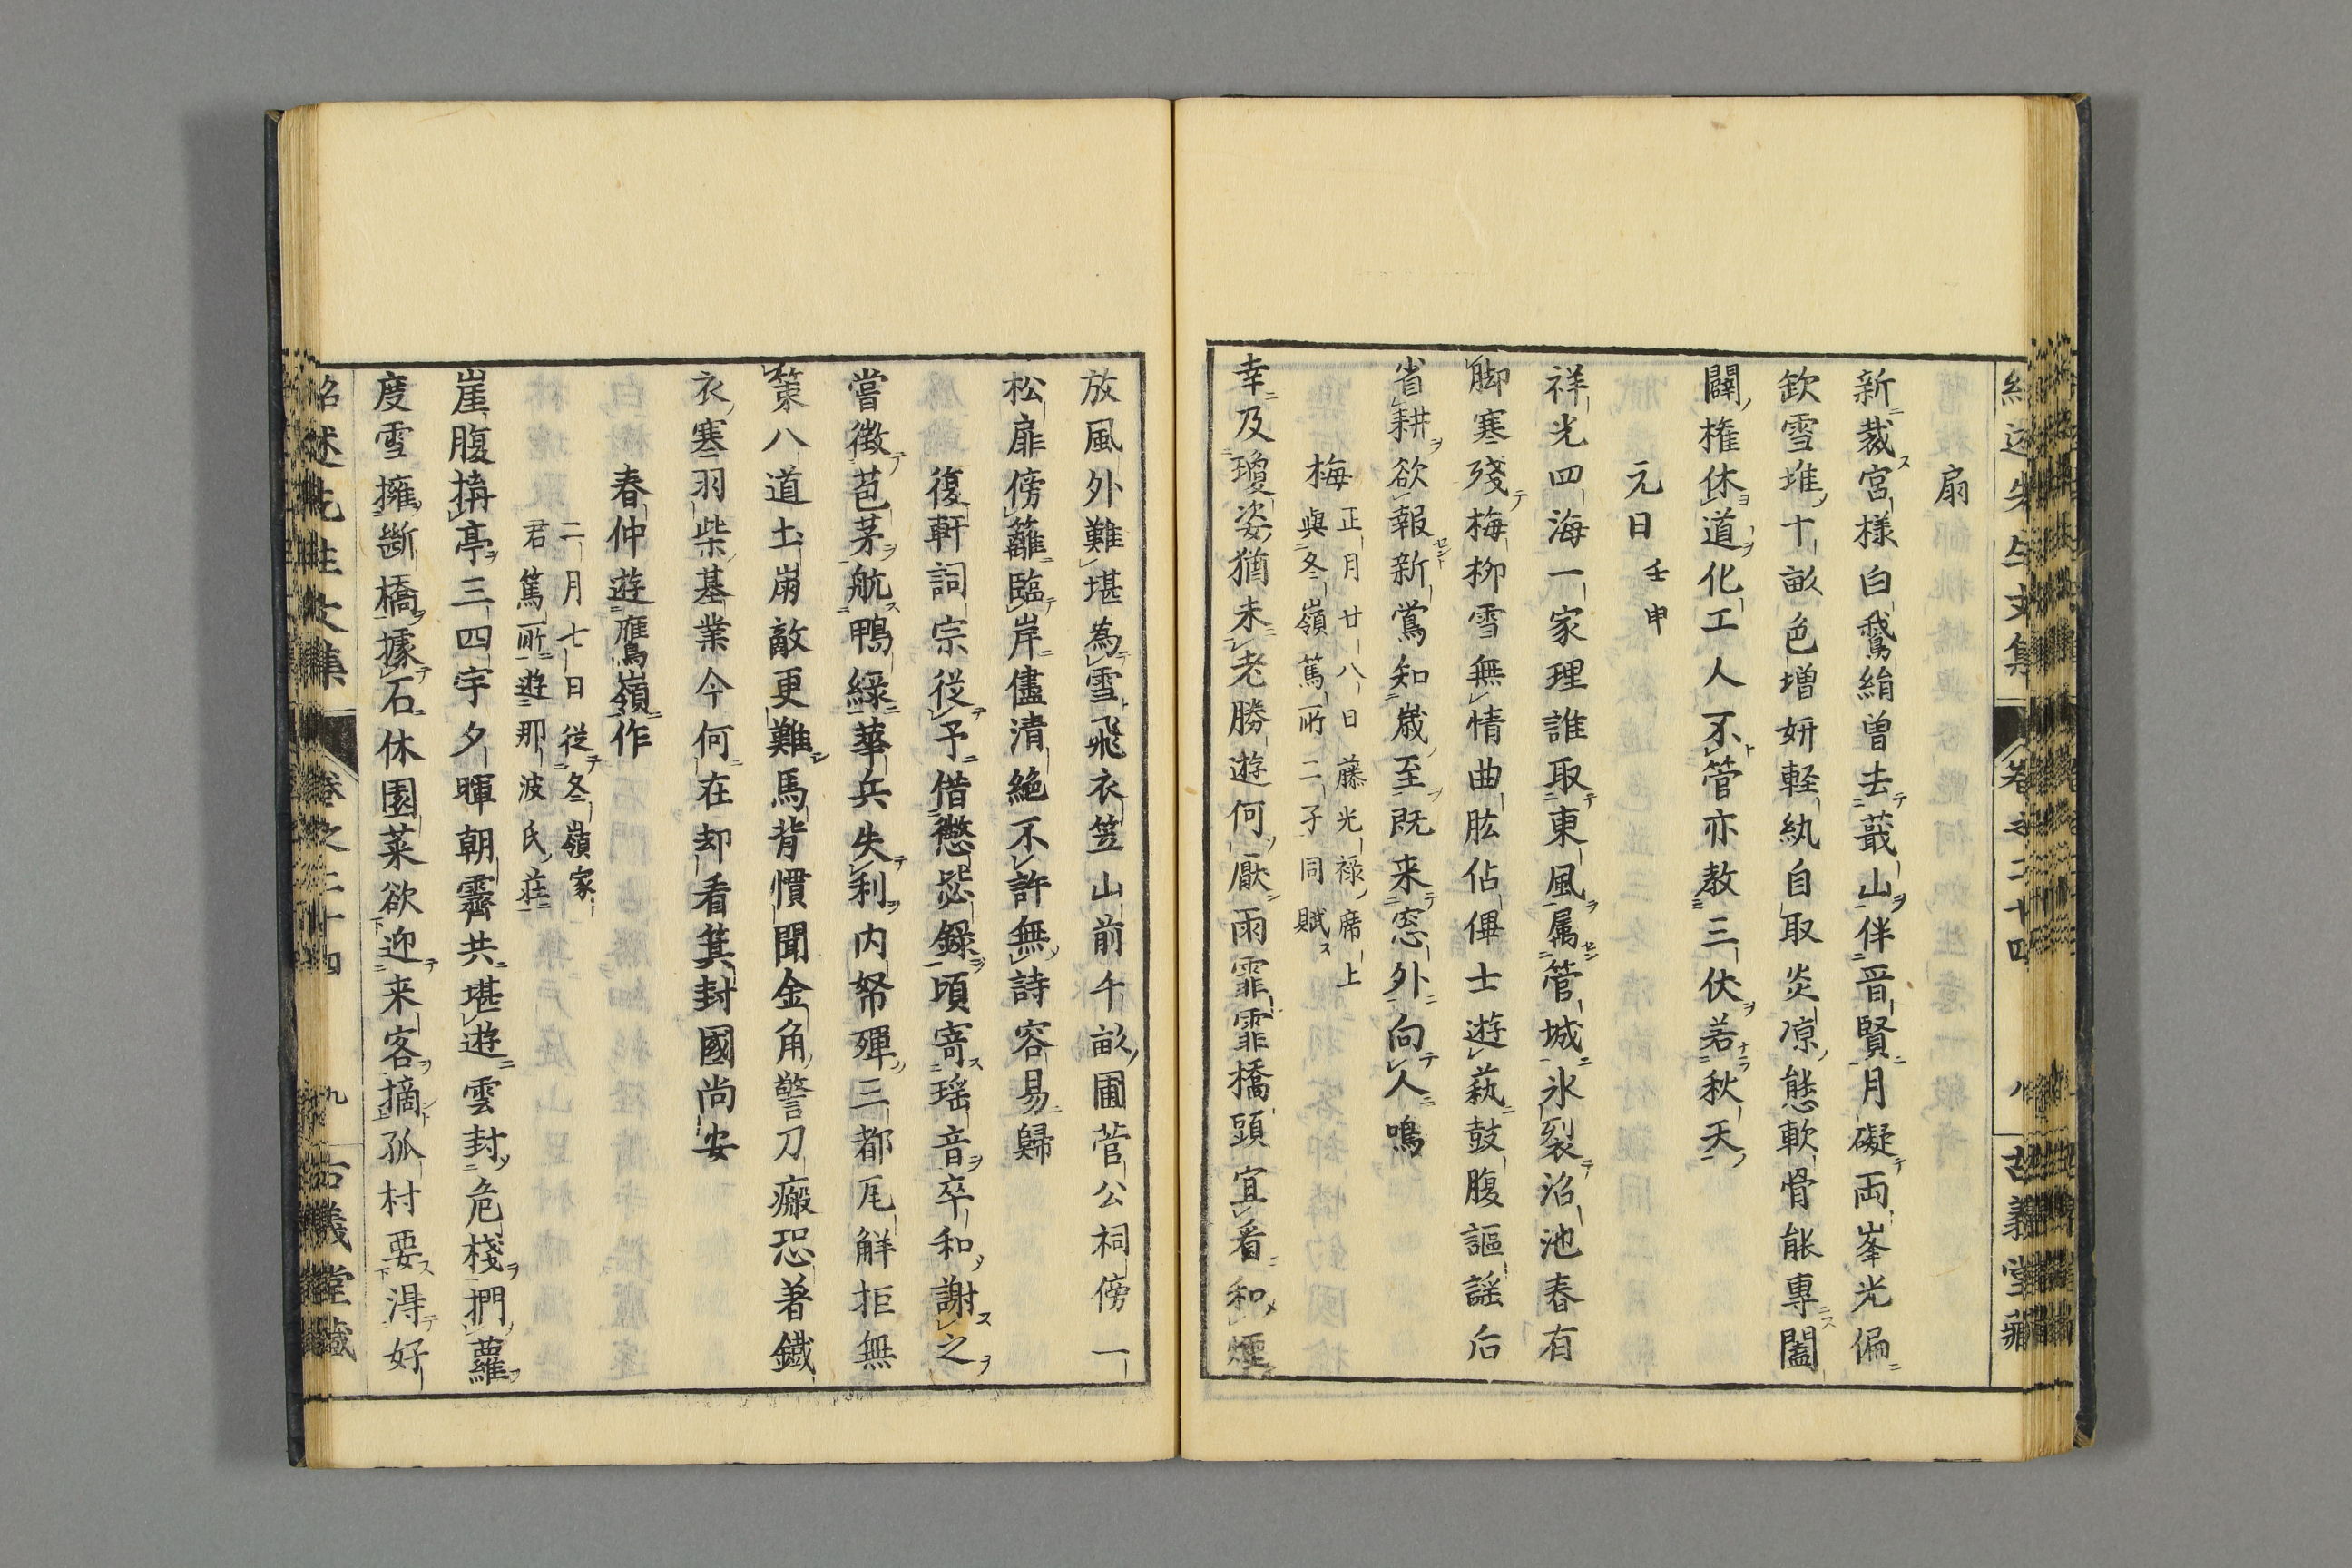 扇
新裁宮樣白鵞絹曽去蕺山伴晋賢月礙両峯光偏
欽雪堆十畝色増妍軽紈自取炎凉態軟骨能專闔
闢権休道化工人不管亦教三伏若秋天
元日 壬申
祥光四海一家理誰取東風属管城氷裂沼池春有
脚寒殘梅柳雪無情曲肱佔俾士遊藝鼓腹謳謡后
省耕欲報新鴬知歳至既来窓外向人鳴
梅 正月廿八日藤光禄席上
與冬嶺篤所二子同賦
幸及瓊姿猶未老勝遊何厭雨霏霏橋頭宜看和煙
放風外難堪為雪飛衣笠山前千畝圃菅公祠傍一
松扉傍籬臨岸儘清絶不許無詩容易歸
復軒詞宗従予借懲毖録頃寄瑶音卒和謝之
嘗徴苞茅航鴨緑華兵失利内帑殫三都瓦解拒無
策八道土崩敵更難馬背慣聞金角警刀瘢恐著鐵
衣寒羽柴基業今何在却看箕封國尚安
春仲遊雁嶺作
二月七日従冬嶺家
君篤所遊那波氏荘
崖腹搆亭三四宇夕暉朝霽共堪遊雲封危棧捫蘿
度雪擁断橋據石休園菜欲迎来客摘孤村要淂好
紹述先生文集 巻之二十四 九 古義堂藏